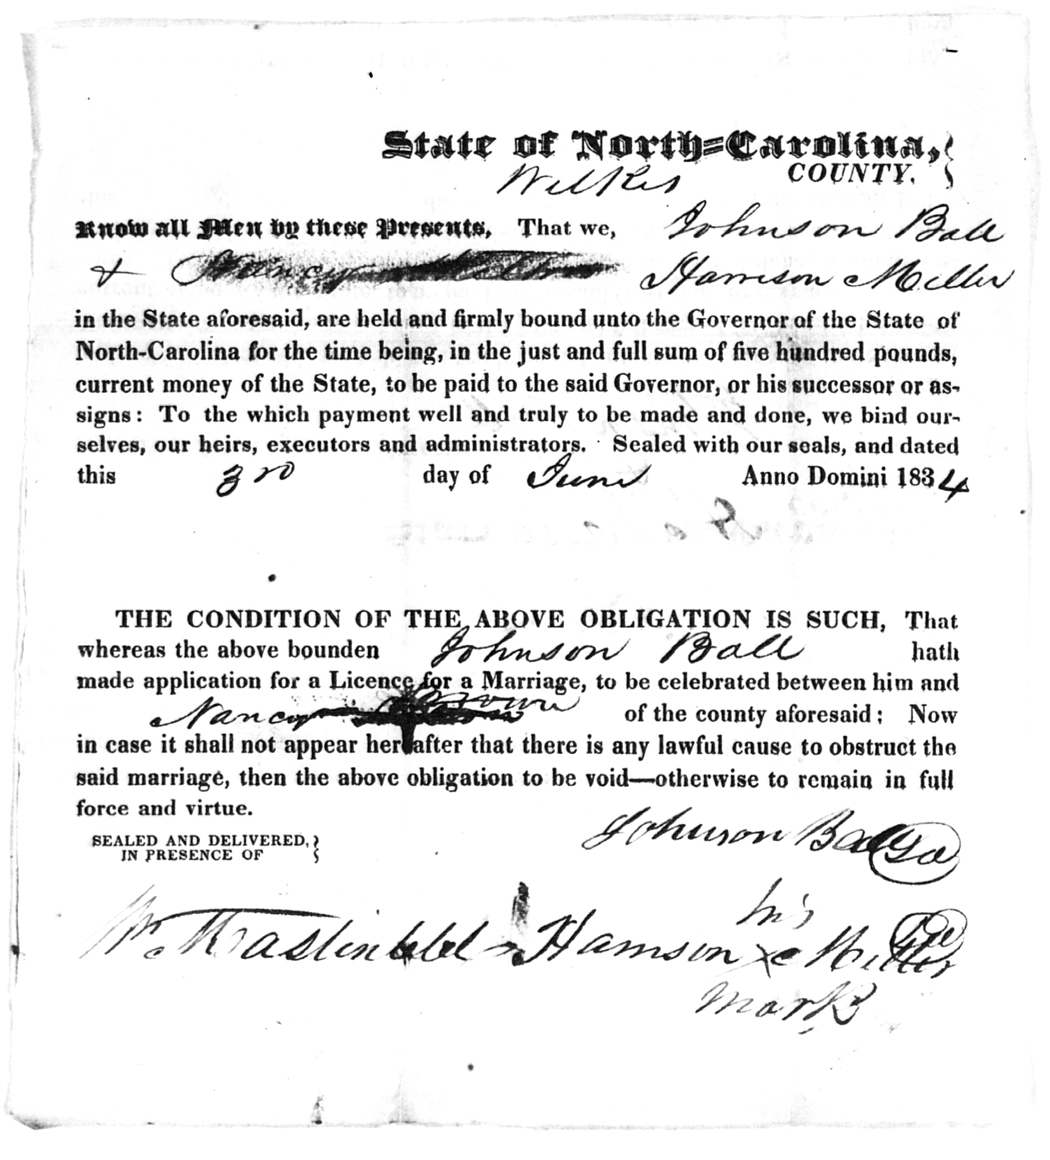 State of North-Carolina,
Wilkes COUNTY.
Know all Men by these Presents, That we, Johnson Ball
& Nancy Harrison Miller
in the State aforesaid, are held and firmly bound unto the Governor of the State of
North-Carolina for the time being, in the just and full sum of five hundred pounds,
current money of the State, to be paid to the said Governor, or his successor or as-
signs: To the which payment well and truly to be made and done, we bind our-
selves, our heirs, executors and administrators. Sealed with our seals, and dated
this 3rd day of June Anno Domini 1834
THE CONDITION OF THE ABOVE OBLIGATION IS SUCH, That
whereas the above bounden Johnson Ball hath
made application for a Licence for a Marriage, to be celebrated between him and
Nancy Brown of the county aforesaid: Now
in case it shall not appear hereafter that there is any lawful cause to obstruct the
said marriage, then the above obligation to be void—otherwise to remain in full
force and virtue.
SEALED AND DELIVERED,
IN PRESENCE OF
Johnson Ball
his
Wm Mastin Harrison x Miller
mark